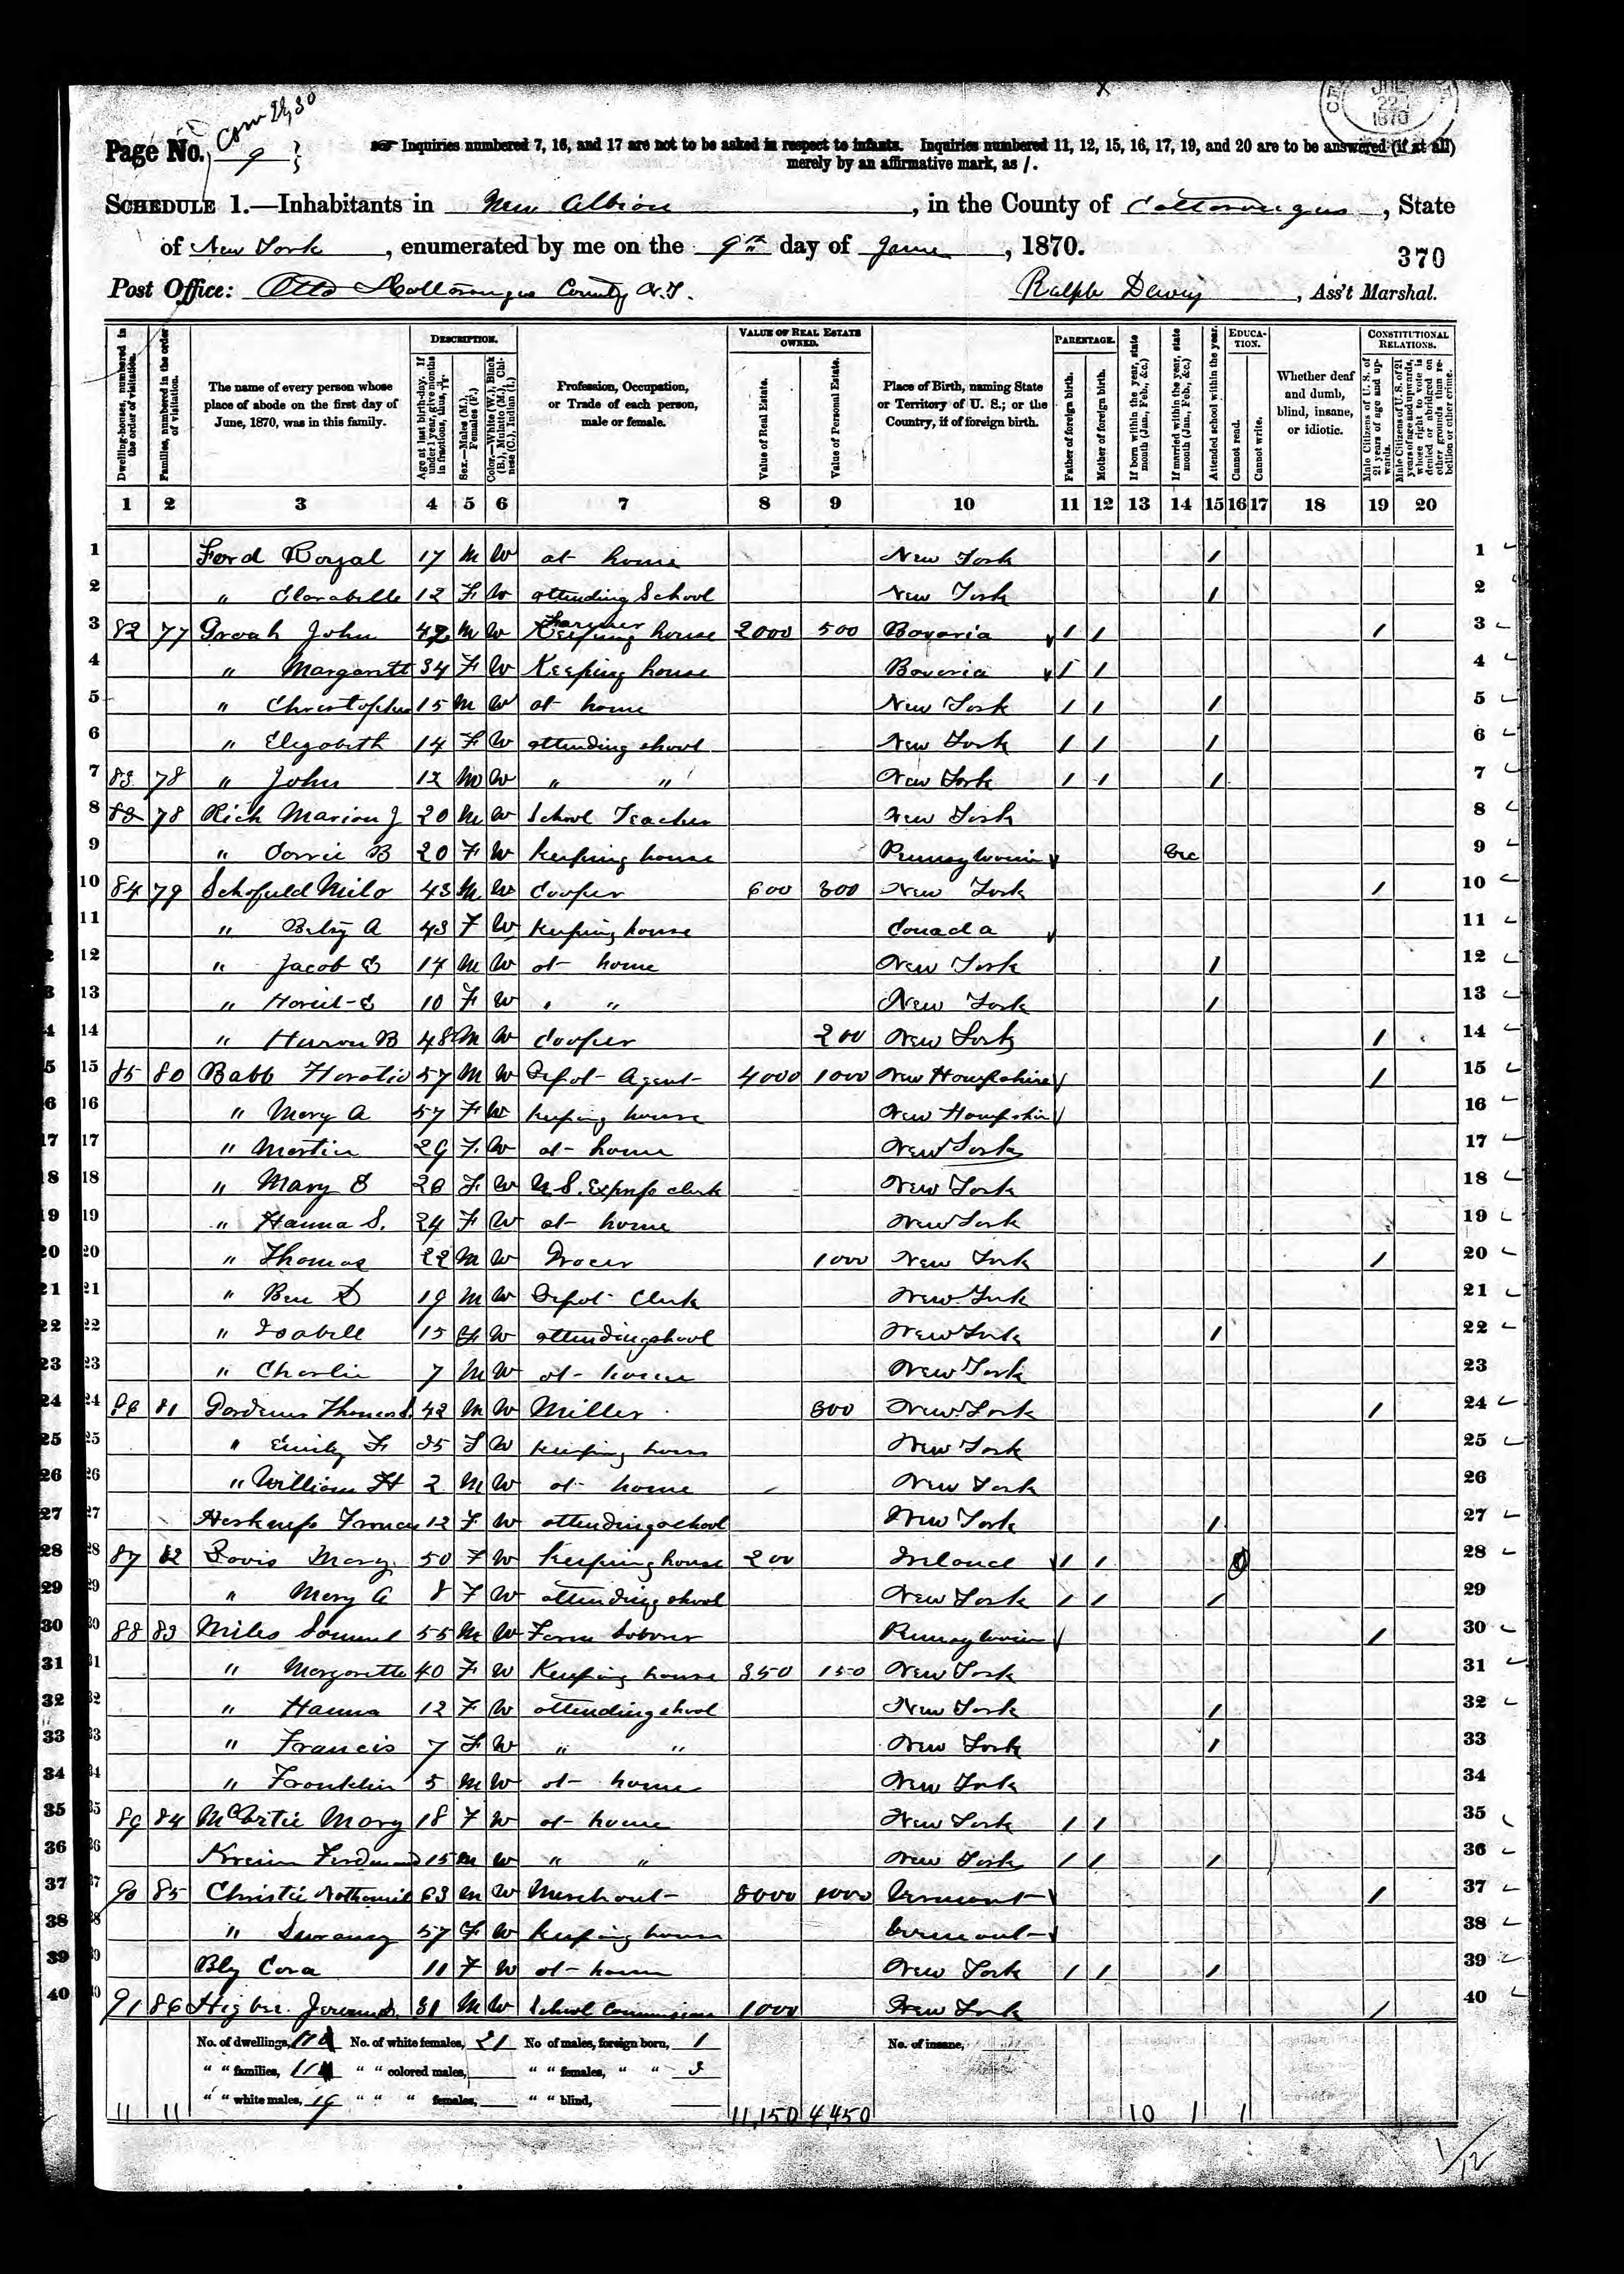 Com 29,30
Page No. 9
Inquiries numbered 7, 16, and 17 are not to be asked in respect to infants. Inquiries numbered 11, 12, 15, 16, 17, 19, and 20 are to be answered (if at all)
merely by an affirmative mark, as /.
SCHEDULE 1.—Inhabitants in New Albion, in the County of Cattaraugus, State
of New York, enumerated by me on the 9th day of June, 1870.
370
Post Office: Otto Cattaraugus County N.Y. Ralph Dewey, Ass't Marshal.
DESCRIPTION. VALUE OF REAL ESTATE OWNED. PARENTAGE. EDUCATION. CONSTITUTIONAL RELATIONS.
Dwelling-houses, numbered in the order of visitation.
Families, numbered in the order of visitation.
The name of every person whose place of abode on the first day of June, 1870, was in this family.
Age at last birth-day. If under 1 year, give months in fractions, thus, 3/12.
Sex.—Males (M.), Females (F.)
Color.—White (W.), Black (B.), Mulatto (M.), Chinese (C.), Indian (I.)
Profession, Occupation, or Trade of each person, male or female.
Value of Real Estate.
Value of Personal Estate.
Place of Birth, naming State or Territory of U. S.; or the Country, if of foreign birth.
Father of foreign birth.
Mother of foreign birth.
If born within the year, state month (Jan., Feb., &c.)
If married within the year, state month (Jan., Feb., &c.)
Attended school within the year.
Cannot read.
Cannot write.
Whether deaf and dumb, blind, insane, or idiotic.
Male Citizens of U. S. of 21 years of age and upwards.
Male Citizens of U. S. of 21 years of age and upwards, whose right to vote is denied or abridged on other grounds than rebellion or other crime.
1 2 3 4 5 6 7 8 9 10 11 12 13 14 15 16 17 18 19 20
1 Ford Royal 17 M W at home New York / 1
2 " Clarabelle 12 F W attending School New York / 2
3 82 77 Groah John 42 M W Farmer Keeping house 2000 500 Bavaria / / / 3
4 " Margarett 34 F W Keeping house Baveria / / 4
5 " Christopher 15 M W at home New York / / / 5
6 " Elizabeth 14 F W attending shool New York / / / 6
7 83 78 " John 12 M W " " New York / / / 7
8 83 78 Rich Marion J 20 M W School Teacher New York 8
9 " Carrie B 20 F W Keeping house Pennsylvania Dec 9
10 84 79 Schofield Milo 43 M W Cooper 600 300 New York / 10
11 " Betsy A 43 F W Keeping house Canada 11
12 " Jacob E 14 M W at home New York / 12
13 " E 10 F W " " New York / 13
14 " Huron B 48 M W Cooper 200 New York / 14
15 85 80 Babb Horatio 57 M W Depot Agent 4000 1000 New Hampshire / 15
16 " Mary A 57 F W keeping house New Hampshire 16
17 " Martin 29 F W at home New York 17
18 " Mary E 26 F W U.S. Express clerk New York 18
19 " Hanna S. 24 F W at home New York 19
20 " Thomas 22 M W Grocer 1000 New York / 20
21 " Ben D 19 M W Depot Clerk New York 21
22 " Isabell 15 F W attending shool New York / 22
23 " Charlie 7 M W at home New York 23
24 86 81 Thomas S. 42 M W Miller 300 New York / 24
25 " Emily F 35 F W keeping house New York 25
26 " William H 2 M W at home New York 26
27 12 F W attending school New York / 27
28 87 82 Davis Mary 50 F W Keeping house 200 Ireland / / / 28
29 " Mary A 8 F W attending shool New York / / / 29
30 88 83 Miles Samuel 55 M W Farm Laborer Pennsylvania / 30
31 " Margarette 40 F W Keeping house 350 150 New York 31
32 " Hanna 12 F W attending shool New York / 32
33 " Francis 7 F W " " New York / 33
34 " Franklin 5 M W at home New York 34
35 89 84 Mary 18 F W at home New York / / 35
36 Ferdinand 15 M W " " New York / / / 36
37 90 85 Christie Nathaniel 63 M W Merchant 3000 1000 Vermont / 37
38 " 57 F W Keeping house Vermont 38
39 Bly Cora 11 F W at home New York / / / 39
40 91 86 Higbee 31 M W School Commissioner 1000 New York / 40
No. of dwellings, No. of white females, 21 No of males, foreign born, 1 No. of insane,
" " families, " " colored males, " " females, " " 3
" " white males, 19 " " " females, " " blind,
11 11 11,150 4,450 10 1 1
1/12